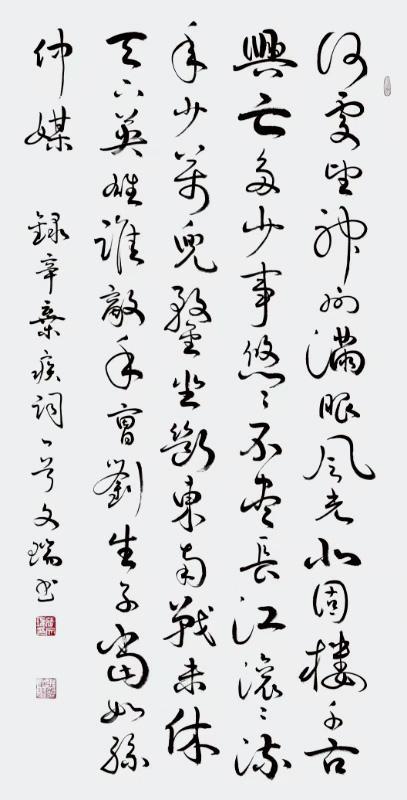 何處望神州滿眼風光北固樓千古
興亡多少事悠〻不盡長江滾〻流
年少萬兜鍪坐斷東南戰未休
天下英雄誰敵手曹劉生子當如孫
仲媒
錄辛棄疾詞一首文瑞書